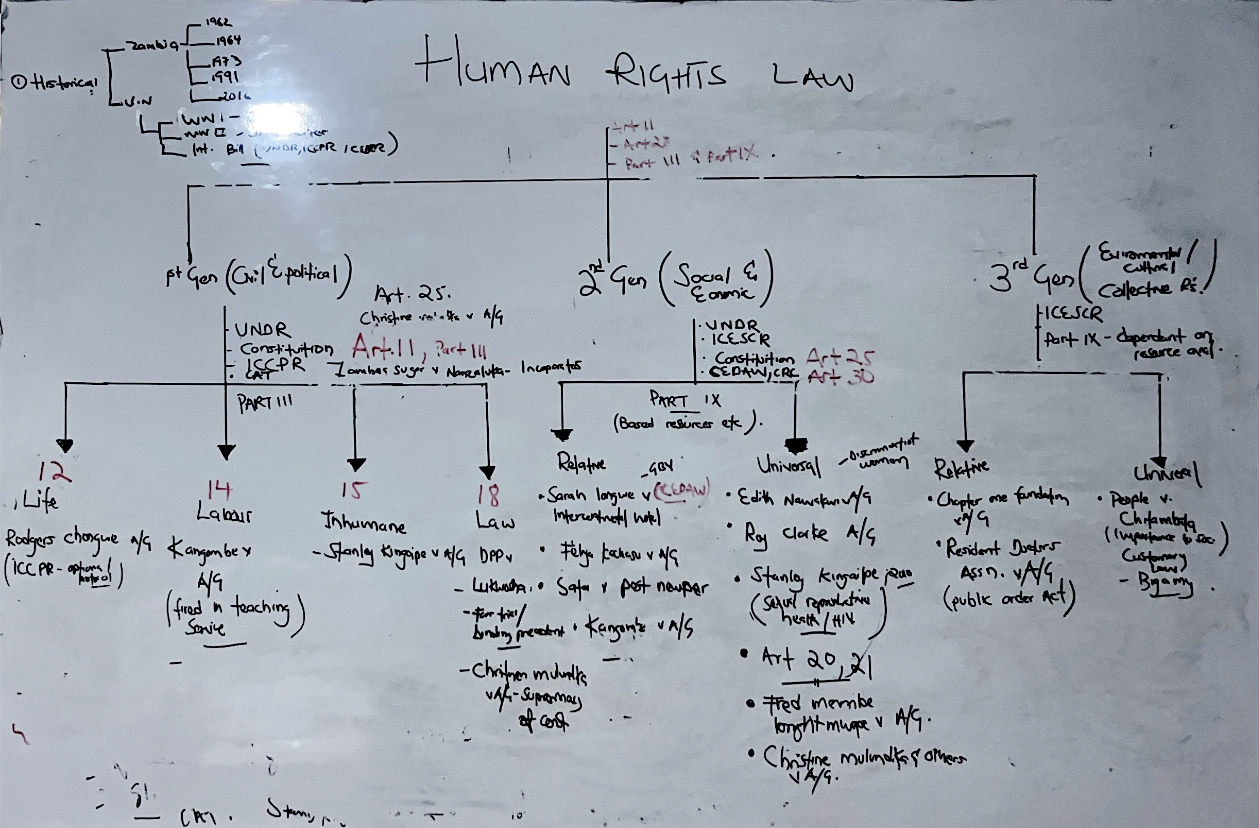 HUMAN RIGHTS LAW
① Historical
Zambia
1962
1964
1973
1991
2016
U.N
WW I -
WW II -
Int. Bill (UNDR, ICCPR, ICESCR)
Art 11
- Art 25
- Part III & Part IX .
1st Gen (Civil & political)
- UNDR
- Constitution
- ICCPR
- CAT
PART III
Art. 25.
Christine v A/G
Art. 11, Part III
Zambia Sugar v Nanzaluka - Incorporates
12
Life
Rodgers chongwe A/G
(ICCPR - optional protocol)
14
Labour
Kangombe v
A/G
(fired in teaching
Service)
15
Inhumane
- Stanley Kingaipe v A/G
18
Law
DPP v
- Lukwosha.
- Fair trial/
binding precedent
- Christine mulundika
v A/G - Supremacy
of const
2nd Gen (Social &
Economic)
· UNDR
· ICESCR
· Constitution Art 25
· CEDAW, CRC Art 30
PART IX
(Based resources etc).
Relative
- GBV
• Sarah longwe v (CEDAW)
Intercontinetal hotel
• v A/G
• Sata v post newsper
• Kangombe v A/G
Universal
- Discrimination of
women
• Edith Nawakwi v A/G
• Roy Clarke A/G
• Stanley Kingaipe
(Sexual reproductive
health / HIV)
• Art 20, 21
• Fred membe
bright mwape v A/G.
• Christine mulundika & others
v A/G.
3rd Gen (Enviromental /
Cultural
Collective Rs.)
- ICESCR
- Part IX - dependent on
resource avai.
Relative
• Chapter one foundation
v A/G
• Resident Doctors
Assn. v A/G
(public order Act)
Universal
• People v.
Chitambala
(Importance to soc.
Customary
law)
- Bigamy